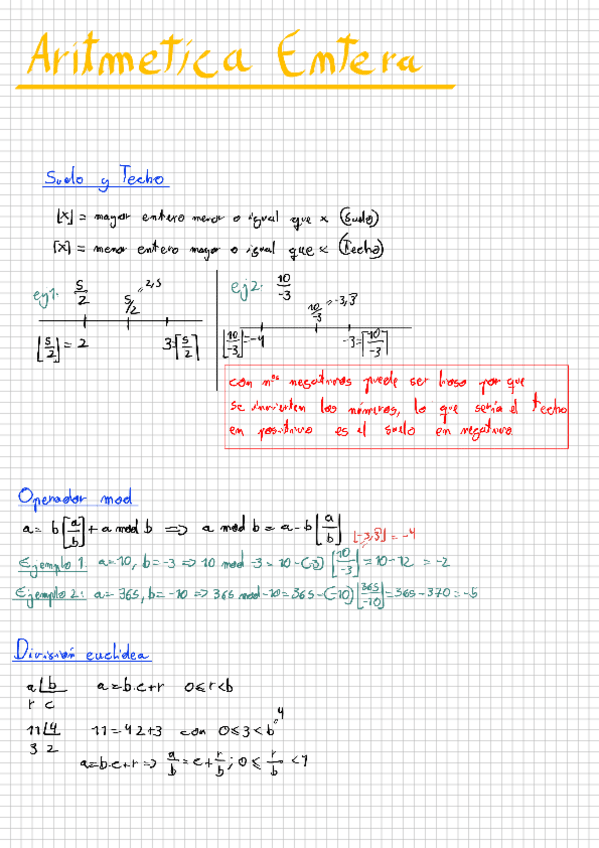 Aritmetica Entera
Suelo y Techo
⌊x⌋ = mayor entero menor o igual que x (Suelo)
⌈x⌉ = menor entero mayor o igual que x (Techo)
ej1: 5/2
5/2 = 2,5
⌊5/2⌋ = 2 3 = ⌈5/2⌉
ej2: 10/-3
10/-3 = -3,3
⌊10/-3⌋ = -4 -3 = ⌈10/-3⌉
con nºs negativos puede ser lioso por que
se invierten los números, lo que sería el techo
en positivo es el suelo en negativo
Operador mod
a = b⌊a/b⌋ + a mod b ⇒ a mod b = a - b⌊a/b⌋
⌊-3,3⌋ = -4
Ejemplo 1: a=10, b=-3 ⇒ 10 mod -3 = 10-(-3)⌊10/-3⌋ = 10-12 = -2
Ejemplo 2: a=365, b=-10 ⇒ 365 mod -10 = 365-(-10)⌊365/-10⌋ = 365-370 = -5
División euclidea
a ⌊b a=b·c+r 0≤r<b
r c
11 ⌊4 11=4·2+3 con 0≤3<b=4
3 2
a=b·c+r ⇒ a/b = c + r/b ; 0 ≤ r/b < 1